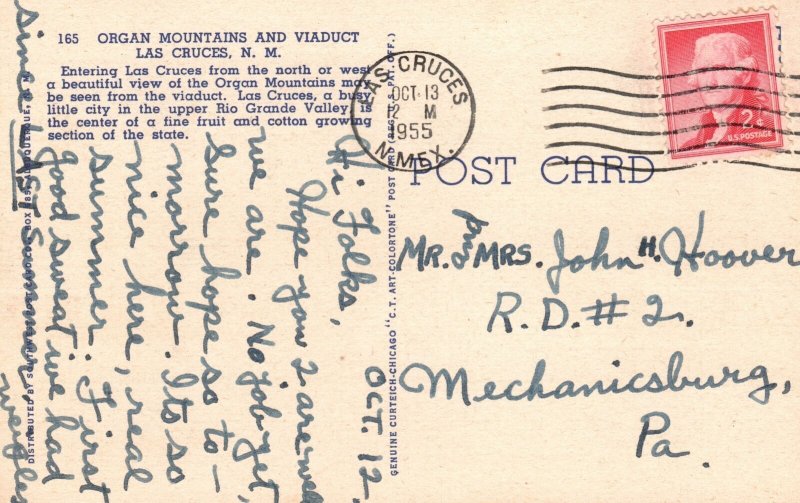 165 ORGAN MOUNTAINS AND VIADUCT
LAS CRUCES, N. M.
Entering Las Cruces from the north or west
a beautiful view of the Organ Mountains may
be seen from the viaduct. Las Cruces, a busy
little city in the upper Rio Grande Valley, is
the center of a fine fruit and cotton growing
section of the state.
Oct 12,
Hi Folks,
Hope you 2 are well
we are. No job yet,
Sure hope so to-
morrow. Its so
nice here, real
summer. First
good sweat we had
since last Summer.
DISTRIBUTED BY ALBUQUERQUE, N. M.
GENUINE CURTEICH-CHICAGO "C. T. ART-COLORTONE" POST CARD (REG. U.S. PAT. OFF.)
LAS CRUCES
OCT 13
12 M
1955
N. MEX.
2¢
U.S. POSTAGE
POST CARD
Mr. and Mrs. John H. Hoover
R.D. # 2.
Mechanicsburg,
Pa.